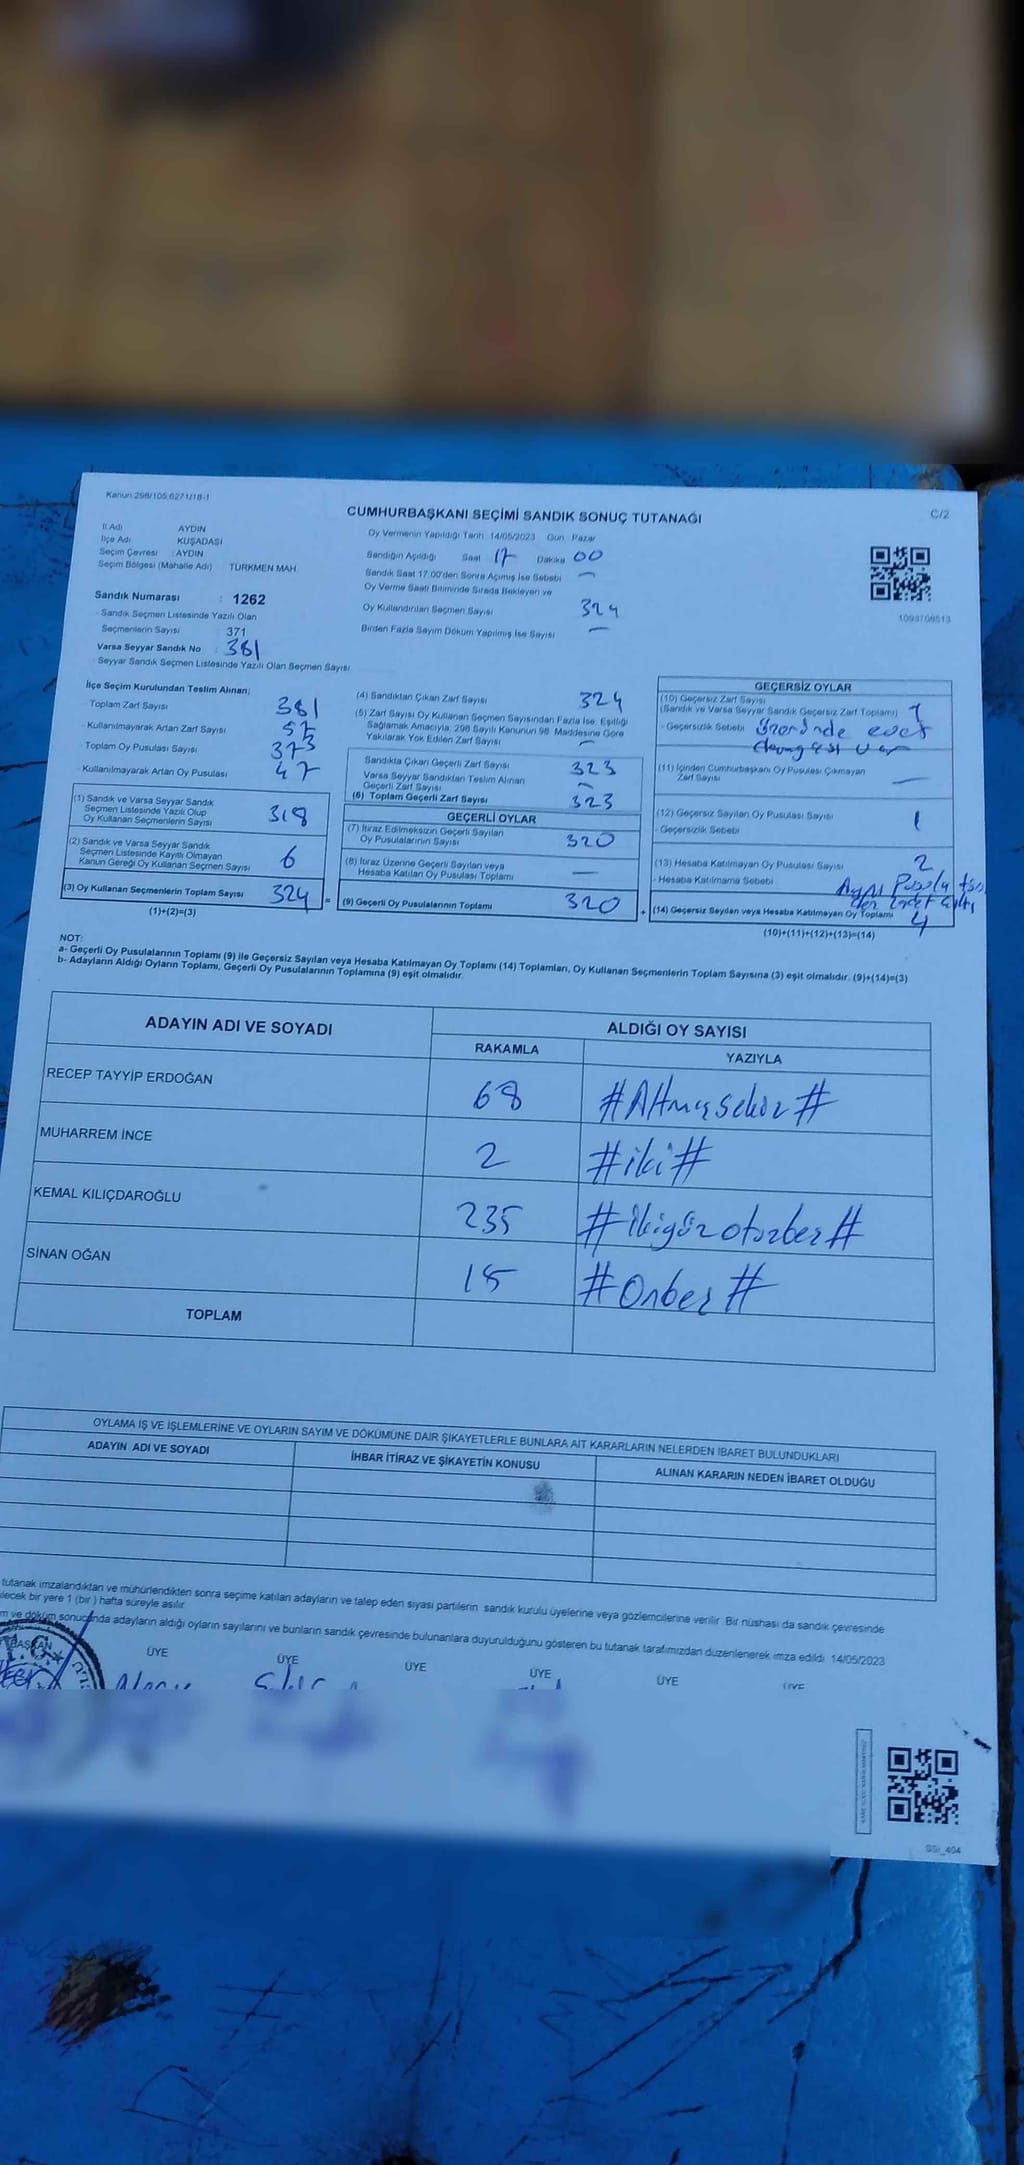 Kanun 298/105,6271/18-1
CUMHURBAŞKANI SEÇİMİ SANDIK SONUÇ TUTANAĞI
C/2
İl Adı AYDIN
İlçe Adı KUŞADASI
Seçim Çevresi : AYDIN
Seçim Bölgesi (Mahalle Adı) TÜRKMEN MAH.
Oy Vermenin Yapıldığı Tarih 14/05/2023 Gün Pazar
Sandığın Açıldığı Saat 17 Dakika 00
Sandık Saat 17.00'den Sonra Açımış İse Sebebi —
Oy Verme Saati Bitiminde Sırada Bekleyen ve
Oy Kullandırılan Seçmen Sayısı 324
Birden Fazla Sayım Döküm Yapılmış İse Sayısı —
1093708513
Sandık Numarası : 1262
- Sandık Seçmen Listesinde Yazılı Olan
Seçmenlerin Sayısı 371
Varsa Seyyar Sandık No : 381
- Seyyar Sandık Seçmen Listesinde Yazılı Olan Seçmen Sayısı
İlçe Seçim Kurulundan Teslim Alınan;
Toplam Zarf Sayısı 381
- Kullanılmayarak Artan Zarf Sayısı 57
Toplam Oy Pusulası Sayısı 373
- Kullanılmayarak Artan Oy Pusulası 47
(1) Sandık ve Varsa Seyyar Sandık
Seçmen Listesinde Yazılı Olup
Oy Kullanan Seçmenlerin Sayısı 318
(2) Sandık ve Varsa Seyyar Sandık
Seçmen Listesinde Kayıtlı Olmayan
Kanun Gereği Oy Kullanan Seçmen Sayısı 6
(3) Oy Kullanan Seçmenlerin Toplam Sayısı 324 =
(1)+(2)=(3)
(4) Sandıktan Çıkan Zarf Sayısı 324
(5) Zarf Sayısı Oy Kullanan Seçmen Sayısından Fazla İse, Eşitliği
Sağlamak Amacıyla, 298 Sayılı Kanunun 98. Maddesine Göre
Yakılarak Yok Edilen Zarf Sayısı —
Sandıkta Çıkan Geçerli Zarf Sayısı 323
Varsa Seyyar Sandıktan Teslim Alınan
Geçerli Zarf Sayısı —
(6) Toplam Geçerli Zarf Sayısı 323
GEÇERLİ OYLAR
(7) İtiraz Edilmeksizin Geçerli Sayılan
Oy Pusulalarının Sayısı 320
(8) İtiraz Üzerine Geçerli Sayılan veya
Hesaba Katılan Oy Pusulası Toplamı —
(9) Geçerli Oy Pusulalarının Toplamı 320 +
GEÇERSİZ OYLAR
(10) Geçersiz Zarf Sayısı
(Sandık ve Varsa Seyyar Sandık Geçersiz Zarf Toplamı) 1
- Geçersizlik Sebebi Üzerinde evet
var
(11) İçinden Cumhurbaşkanı Oy Pusulası Çıkmayan
Zarf Sayısı —
(12) Geçersiz Sayılan Oy Pusulası Sayısı 1
- Geçersizlik Sebebi
(13) Hesaba Katılmayan Oy Pusulası Sayısı 2
- Hesaba Katılmama Sebebi Aynı Pusula
(14) Geçersiz Sayılan veya Hesaba Katılmayan Oy Toplamı 4
(10)+(11)+(12)+(13)=(14)
NOT:
a- Geçerli Oy Pusulalarının Toplamı (9) ile Geçersiz Sayılan veya Hesaba Katılmayan Oy Toplamı (14) Toplamları, Oy Kullanan Seçmenlerin Toplam Sayısına (3) eşit olmalıdır. (9)+(14)=(3)
b- Adayların Aldığı Oyların Toplamı, Geçerli Oy Pusulalarının Toplamına (9) eşit olmalıdır.
ADAYIN ADI VE SOYADI
ALDIĞI OY SAYISI
RAKAMLA YAZIYLA
RECEP TAYYİP ERDOĞAN 68 #Altmışsekiz#
MUHARREM İNCE 2 #iki#
KEMAL KILIÇDAROĞLU 235 #ikiyüzotuzbeş#
SİNAN OĞAN 15 #Onbeş#
TOPLAM
OYLAMA İŞ VE İŞLEMLERİNE VE OYLARIN SAYIM VE DÖKÜMÜNE DAİR ŞİKAYETLERLE BUNLARA AİT KARARLARIN NELERDEN İBARET BULUNDUKLARI
ADAYIN ADI VE SOYADI İHBAR İTİRAZ VE ŞİKAYETİN KONUSU ALINAN KARARIN NEDEN İBARET OLDUĞU
tutanak imzalandıktan ve mühürlendikten sonra seçime katılan adayların ve talep eden siyasi partilerin sandık kurulu üyelerine veya gözlemcilerine verilir. Bir nüshası da sandık çevresinde
ilecek bir yere 1 (bir) hafta süreyle asılır.
m ve döküm sonucunda adayların aldığı oyların sayılarını ve bunların sandık çevresinde bulunanlara duyurulduğunu gösteren bu tutanak tarafımızdan düzenlenerek imza edildi. 14/05/2023
BAŞKAN ÜYE ÜYE ÜYE ÜYE ÜYE ÜYE
T.C.